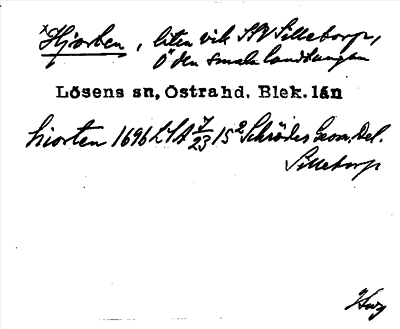 ×Hjorten, liten vik NV Silletorp,
Ö den smala landtungan
Lösens sn, Östra hd. Blek. län
hiorten 1696 LSA 7/23 15² Schröder Geom. Del.
Silletorp